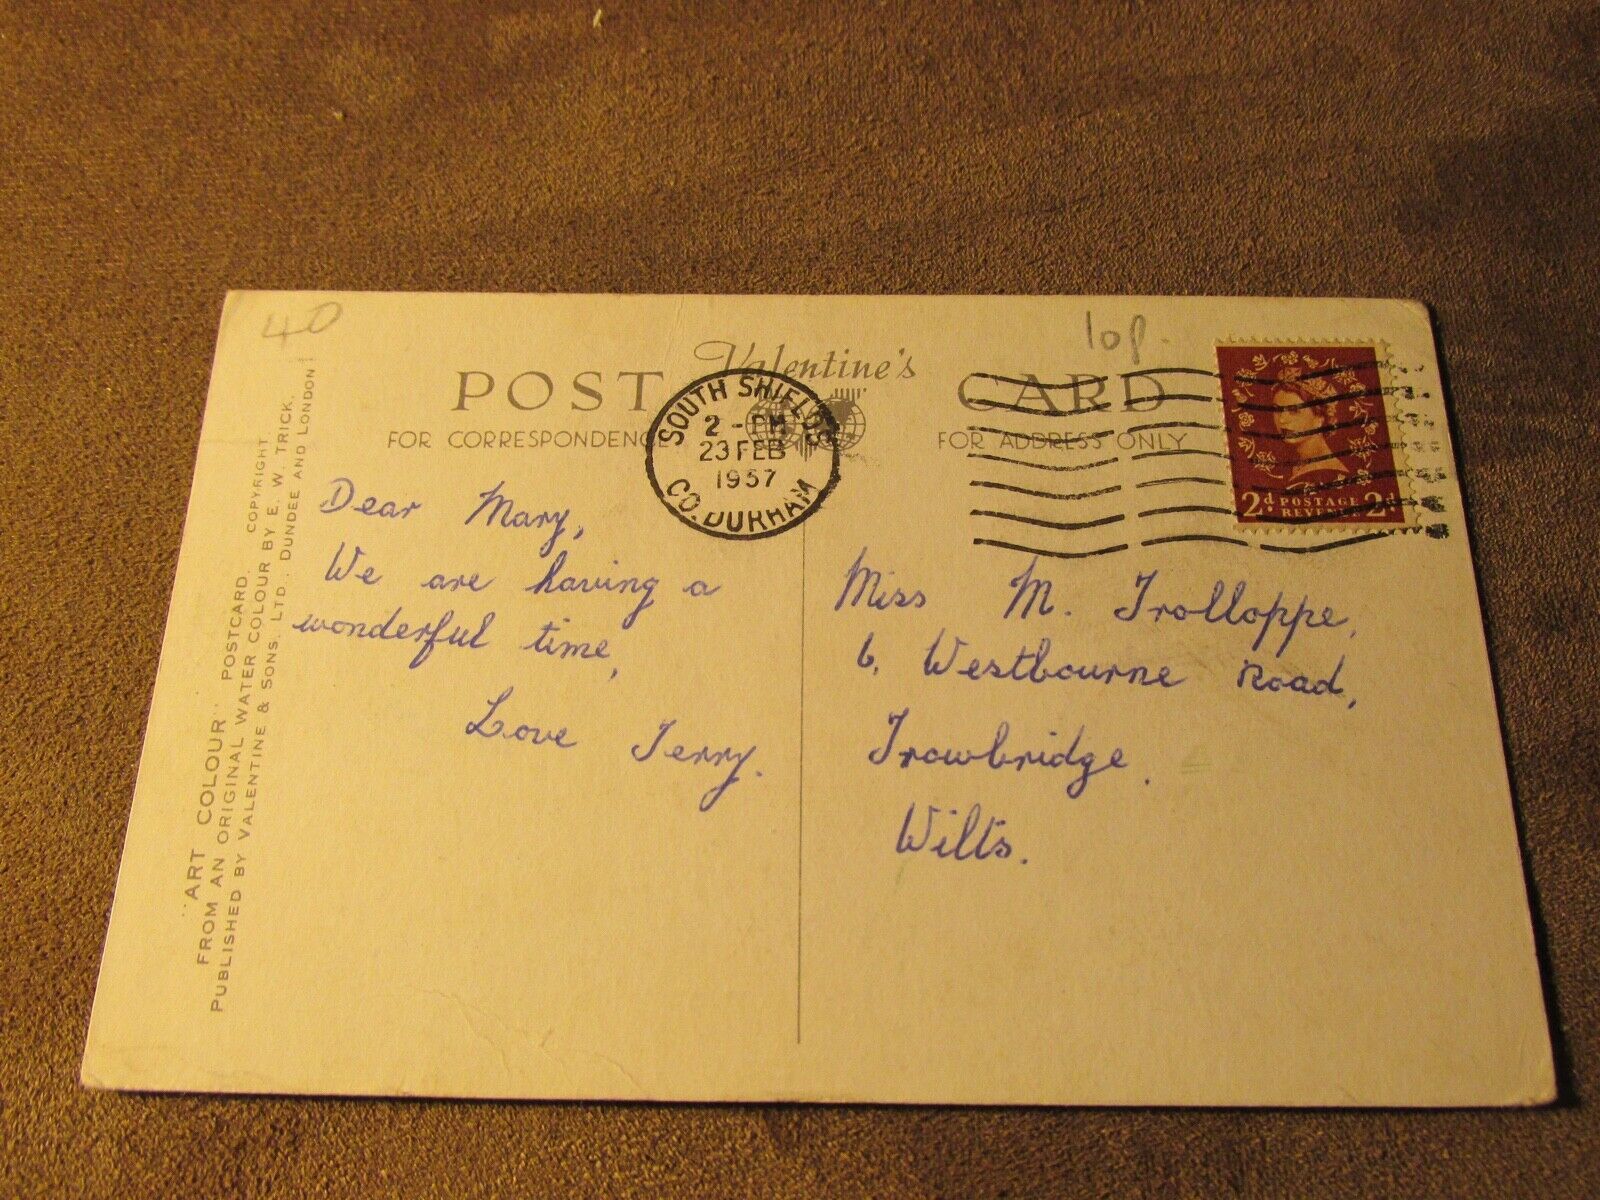 40
10p.
Valentine's
POST CARD
FOR CORRESPONDENCE
FOR ADDRESS ONLY
SOUTH SHIELDS
2 - PM
23 FEB
1957
CO. DURHAM
2d POSTAGE 2d
REVENUE
Dear Mary,
We are having a
wonderful time,
Love Terry.
Miss M. Trolloppe,
6, Westbourne Road,
Trowbridge.
Wilts.
"ART COLOUR" POSTCARD. COPYRIGHT
FROM AN ORIGINAL WATER COLOUR BY E. W. TRICK.
PUBLISHED BY VALENTINE & SONS. LTD., DUNDEE AND LONDON